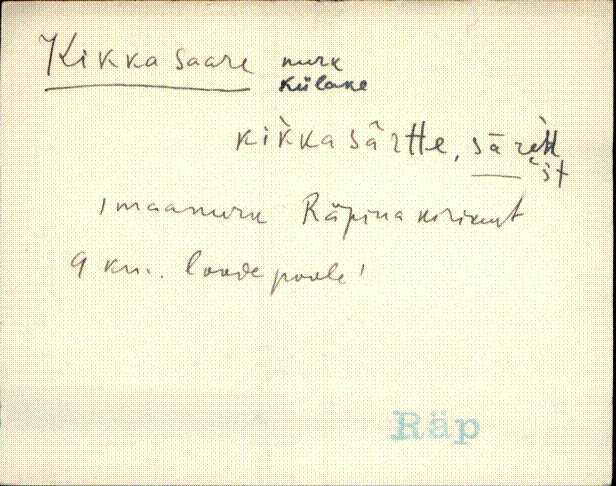 Kikkasaare nurk
külake
kik̀kasārtte, sārèst
'maanurk Räpina kirikust
9 km. loode poole'
Räp